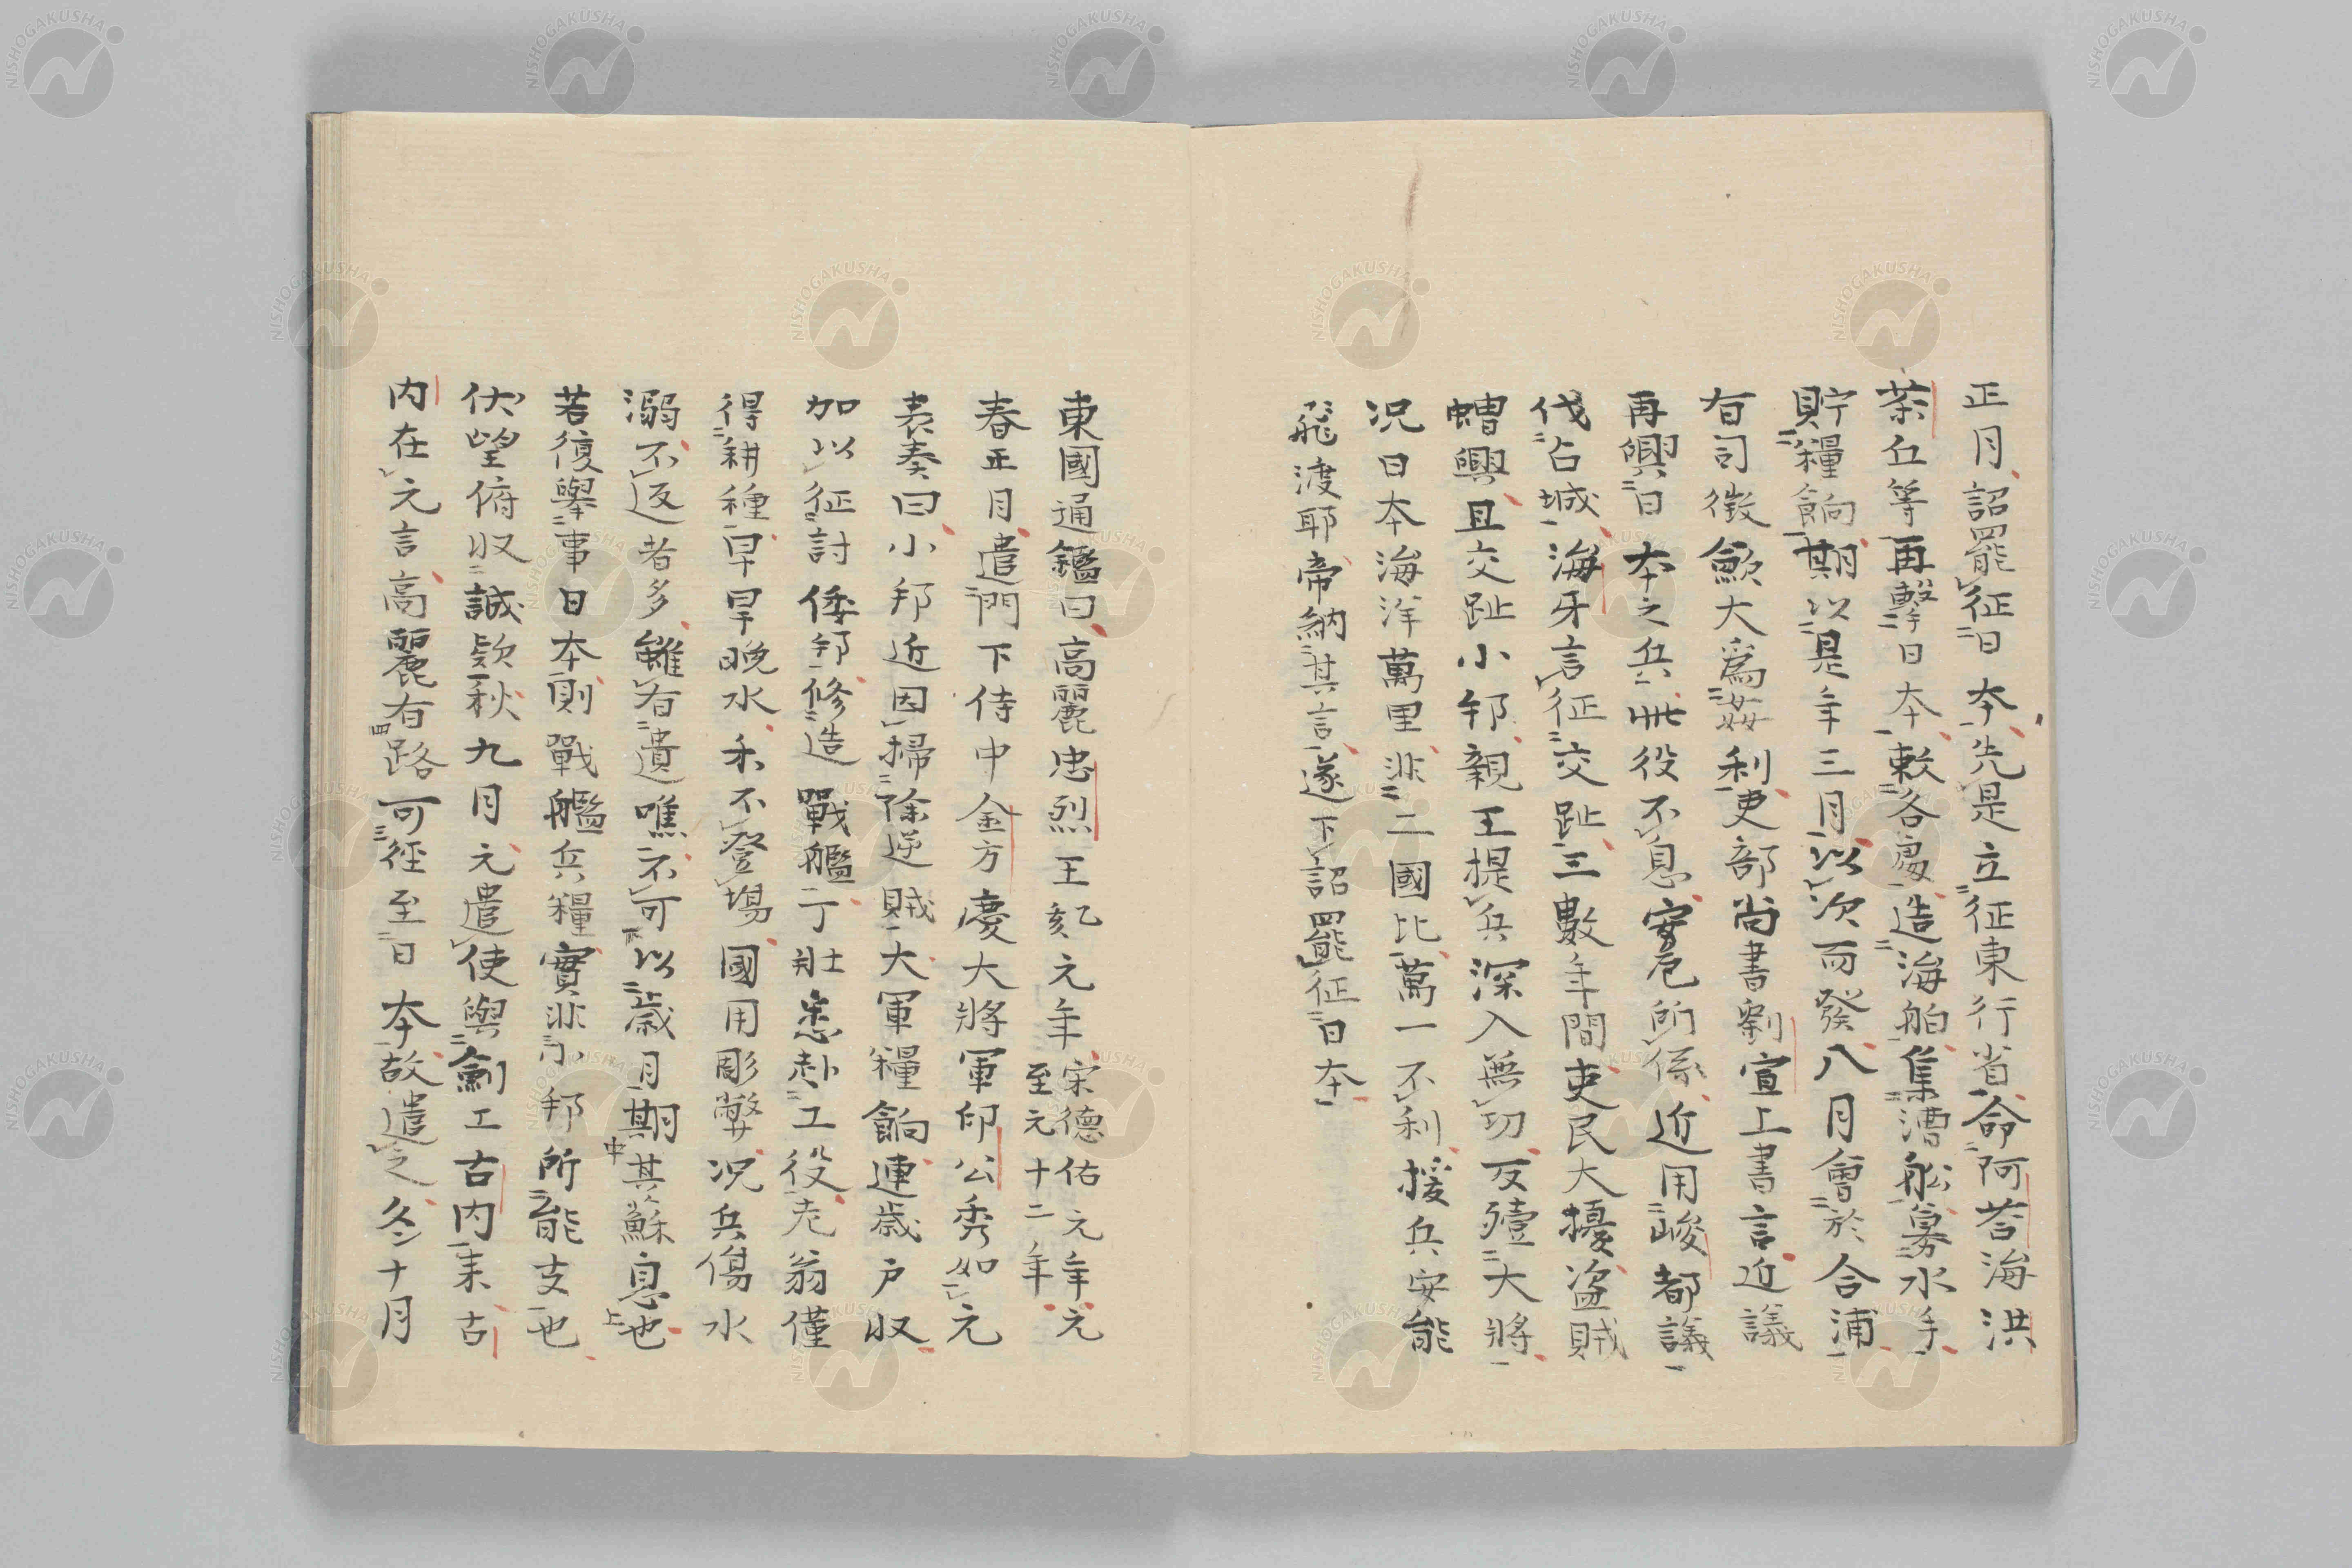 正月詔罷征日本先是立征東行省命阿荅海洪
茶丘等再擊日本敕各處造海舶集漕舩募水手
貯糧餉期以是年三月以次而發八月會於合浦
有司徵歛大爲姦利吏部尚書劉宣上書言近議
再興日本之兵此役不息安危所係近用峻都議
伐占城海牙言征交趾三數年間吏民大擾盜賊
蝤興且交趾小邦親王提兵深入無功反殪大將
況日本海洋萬里非二國比萬一不利援兵安能
飛渡耶帝納其言遂下詔罷征日本
東國通鑑曰高麗忠烈王乙亥元年宋德佑元年元至元十二年
春正月遣門下侍中金方慶大將軍印公秀如元
表奏曰小邦近因掃除逆賊大軍糧餉連歲戶收
加以征討倭邦修造戰艦丁壯悉赴工役老翁僅
得耕種早旱晚水禾不登場國用彫弊況兵傷水
溺不返者多雖有遺噍不可以歲月期其蘇息也
若復舉事日本則戰艦兵糧實非小邦所能支也
伏望俯收誠欵秋九月元遣使與劍工古內來古
內在元言高麗有路可徑至日本故遣之冬十月
NISHOGAKUSHA